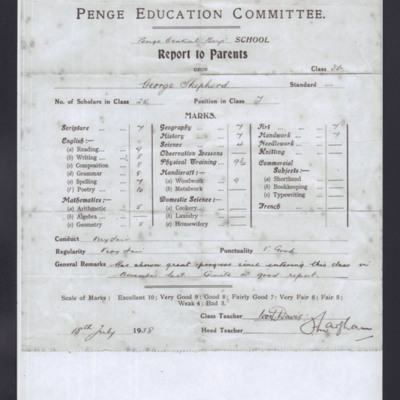 PENGE EDUCATION COMMITTEE.
Penge Central Boys SCHOOL
Report to Parents
UPON
Class
George Shepherd Standard
No. of Scholars in Class Position in Class 7
MARKS.
Scripture 7 Geography 7 Art 7
English:— History 7 Handwork 7
(a) Reading Science Needlework
(b) Writing Observation Lessons Knitting
(c) Composition 8 Physical Training Commercial
(d) Grammar 8 Handicraft:— Subjects:—
(e) Spelling 7 (a) Woodwork (a) Shorthand
(f) Poetry 10 (b) Metalwork (b) Bookkeeping
Mathematics:— Domestic Science:— (c) Typewriting
(a) Arithmetic (a) Cookery French
(b) Algebra (b) Laundry
(c) Geometry 8 (c) Housewifery
Conduct Very fair
Regularity Very fair Punctuality V. Good
General Remarks Has shown great progress since entering this class in
last. Quite a good report.
Scale of Marks: Excellent 10; Very Good 9; Good 8; Fairly Good 7; Very Fair 6; Fair 5;
Weak 4; Bad 3.
Class Teacher
18th July 1938 Head Teacher